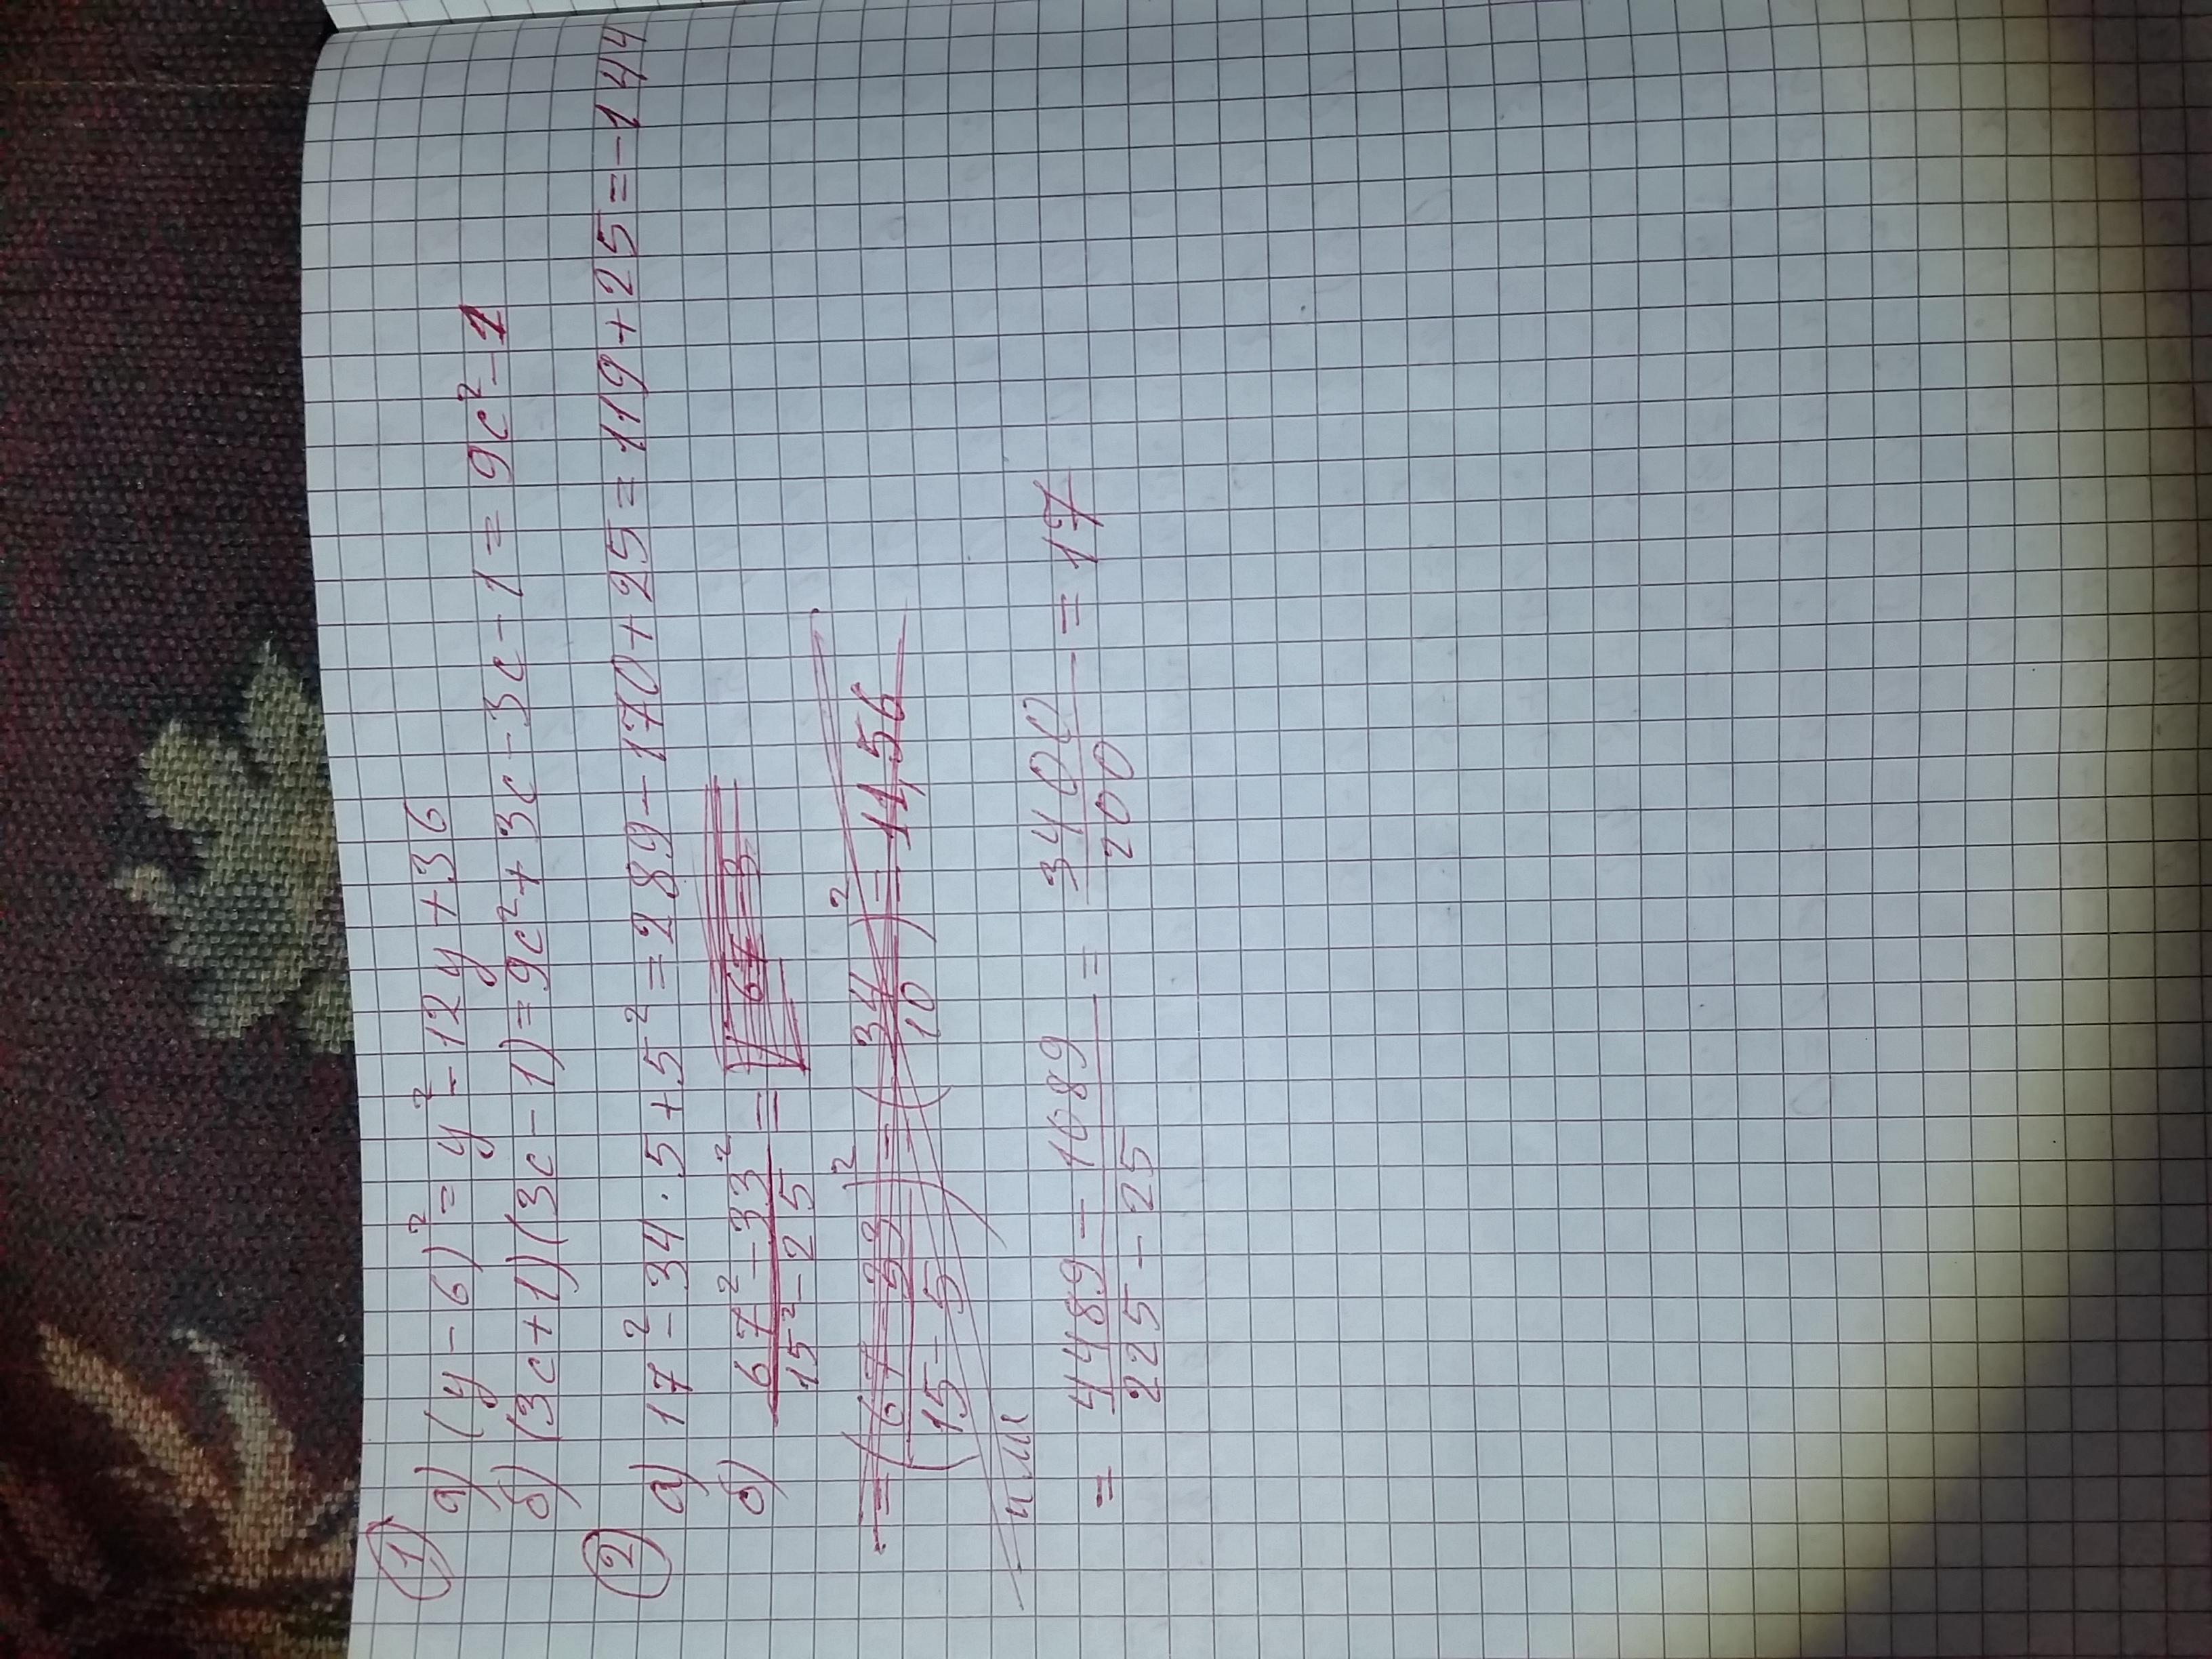 1
а) (y - 6)² = y² - 12y + 36
б) (3c+1)(3c - 1) = 9c² + 3c - 3c - 1 = 9c² - 1
2
а) 17² - 34 · 5 + 5² = 289 - 170 + 25 = 119 + 25 = - 144
б) 67² - 33² / 15² - 25 =
= (67 - 33 / 15 - 5)² = (34 / 10)² = 11,56
или
= 4489 - 1089 / 225 - 25 = 3400 / 200 = 17